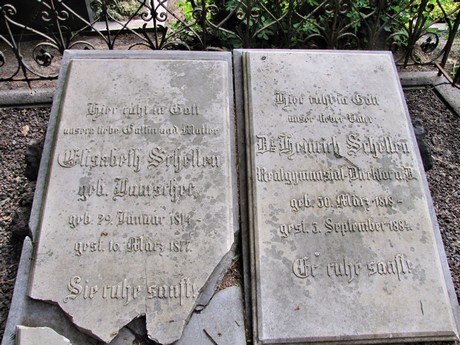 Hier ruht in Gott
unsere liebe Gattin und Mutter
Elisabeth Schellen
geb.
geb. 29. Januar
gest. 16. März
Sie ruhe sanft!
Hier ruht in Gott
unser lieber Vater
Dr. Heinrich Schellen
Realgymnasial-Direktor a.D.
geb. 30. März 1818.
gest. 3. September 1884.
Er ruhe sanft!